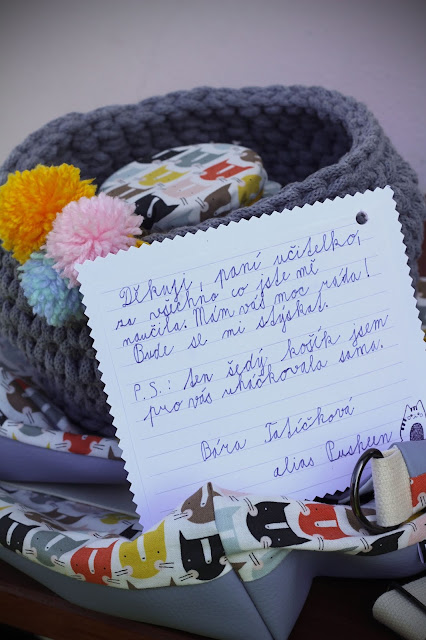 Děkuji, paní učitelko,
za všechno co jste mě
naučila. Mám vás moc ráda!
Bude se mi stýskat.
P.S.: ten šedý košík jsem
pro vás uháčkovala sama.
Bára Tasíčková
alias Pusheen